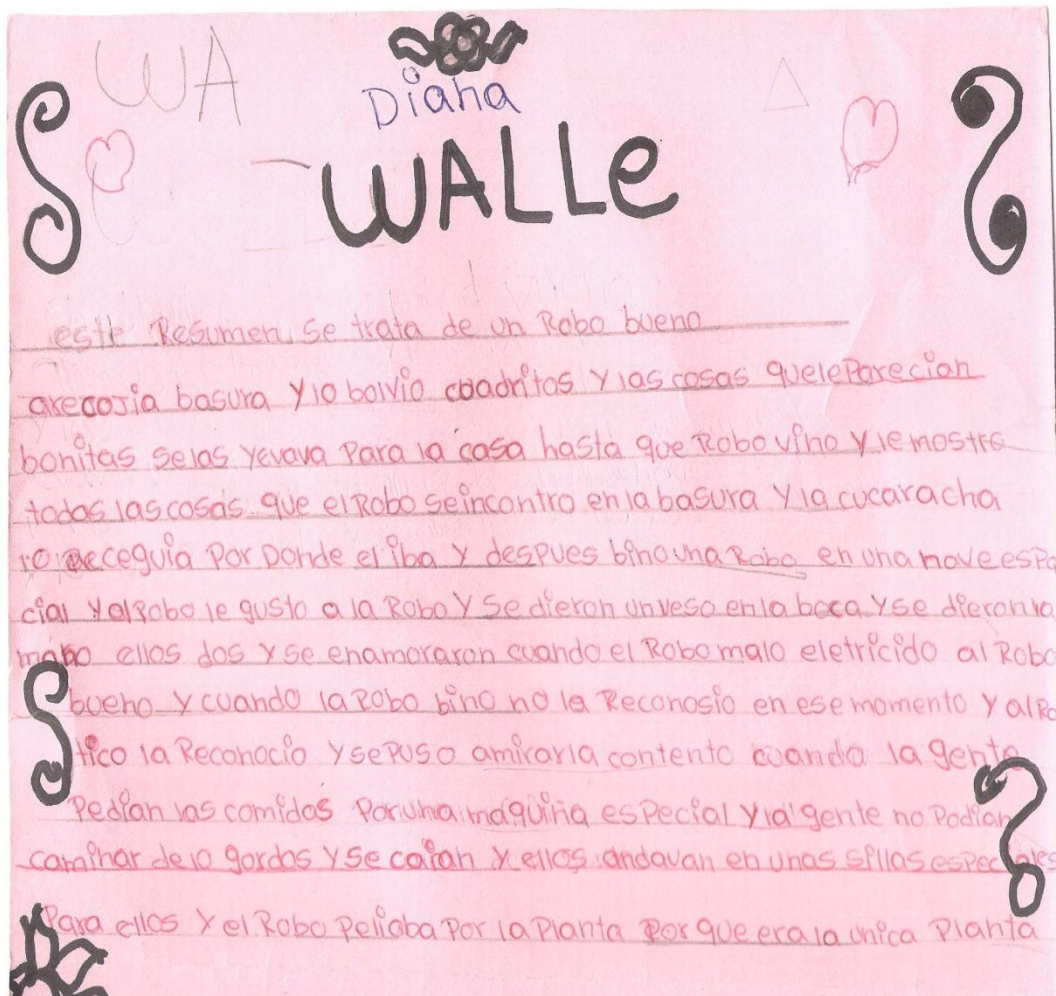 WA
Diana
WALLe
este Resumen Se trata de un Robo bueno
arecojia basura Y lo bolvio cuadritos Y las cosas que le Parecian
bonitas se las Yevava Para la casa hasta que Robo vino Y le mostro
todas las cosas que el Robo se incontro en la basura Y la cucaracha
lo receguia Por Donde el iba Y despues bino una Robo en una nave espa
cial Y al Robo le gusto a la Robo Y Se dieron un veso en la boca Y se dieron la
mano ellos dos Y se enamoraron cuando el Robo malo eletricido al Robo
bueno Y cuando la Robo bino no la Reconosio en ese momento Y al Ra
tico la Reconocio Y se Puso a mirarla contento cuando la gente
Pedian las comidas Por una maquina esPecial Y la gente no Podian
caminar de lo gordos Y Se caian Y ellos andavan en unas sillas especiales
Para ellos Y el Robo Peliaba Por la Planta Por que era la unica Planta